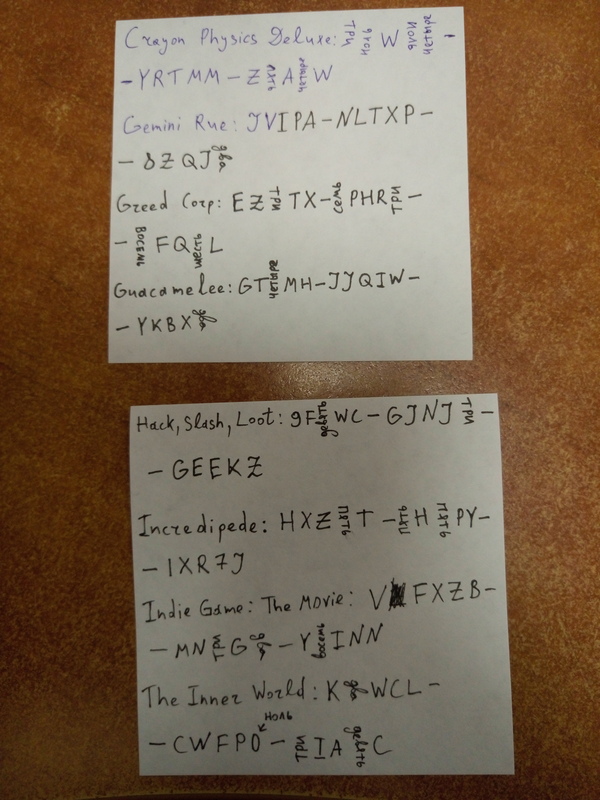 Crayon Physics Deluxe: три ноль W ноль четыре
-YRTMM-Z пять A четыре W
Gemini Rue: JVIPA-NLTXP-
-8ZQJ два
Greed Corp: EZ три TX-семь PHR три-
-восемь FQ шесть L
Guacamelee: GT четыре MH-JJQIW-
-YKBX два
Hack, Slash, Loot: 9F девять WC-GJNJ три-
-GEEKZ
Incredipede: HXZ пять T-пять H пять PY-
-IXR7J
Indie Game: The Movie: VFXZB-
-MN три G два-Y восемь INN
The Inner World: K два WCL-
ноль
-CWFP0-три IA девять C